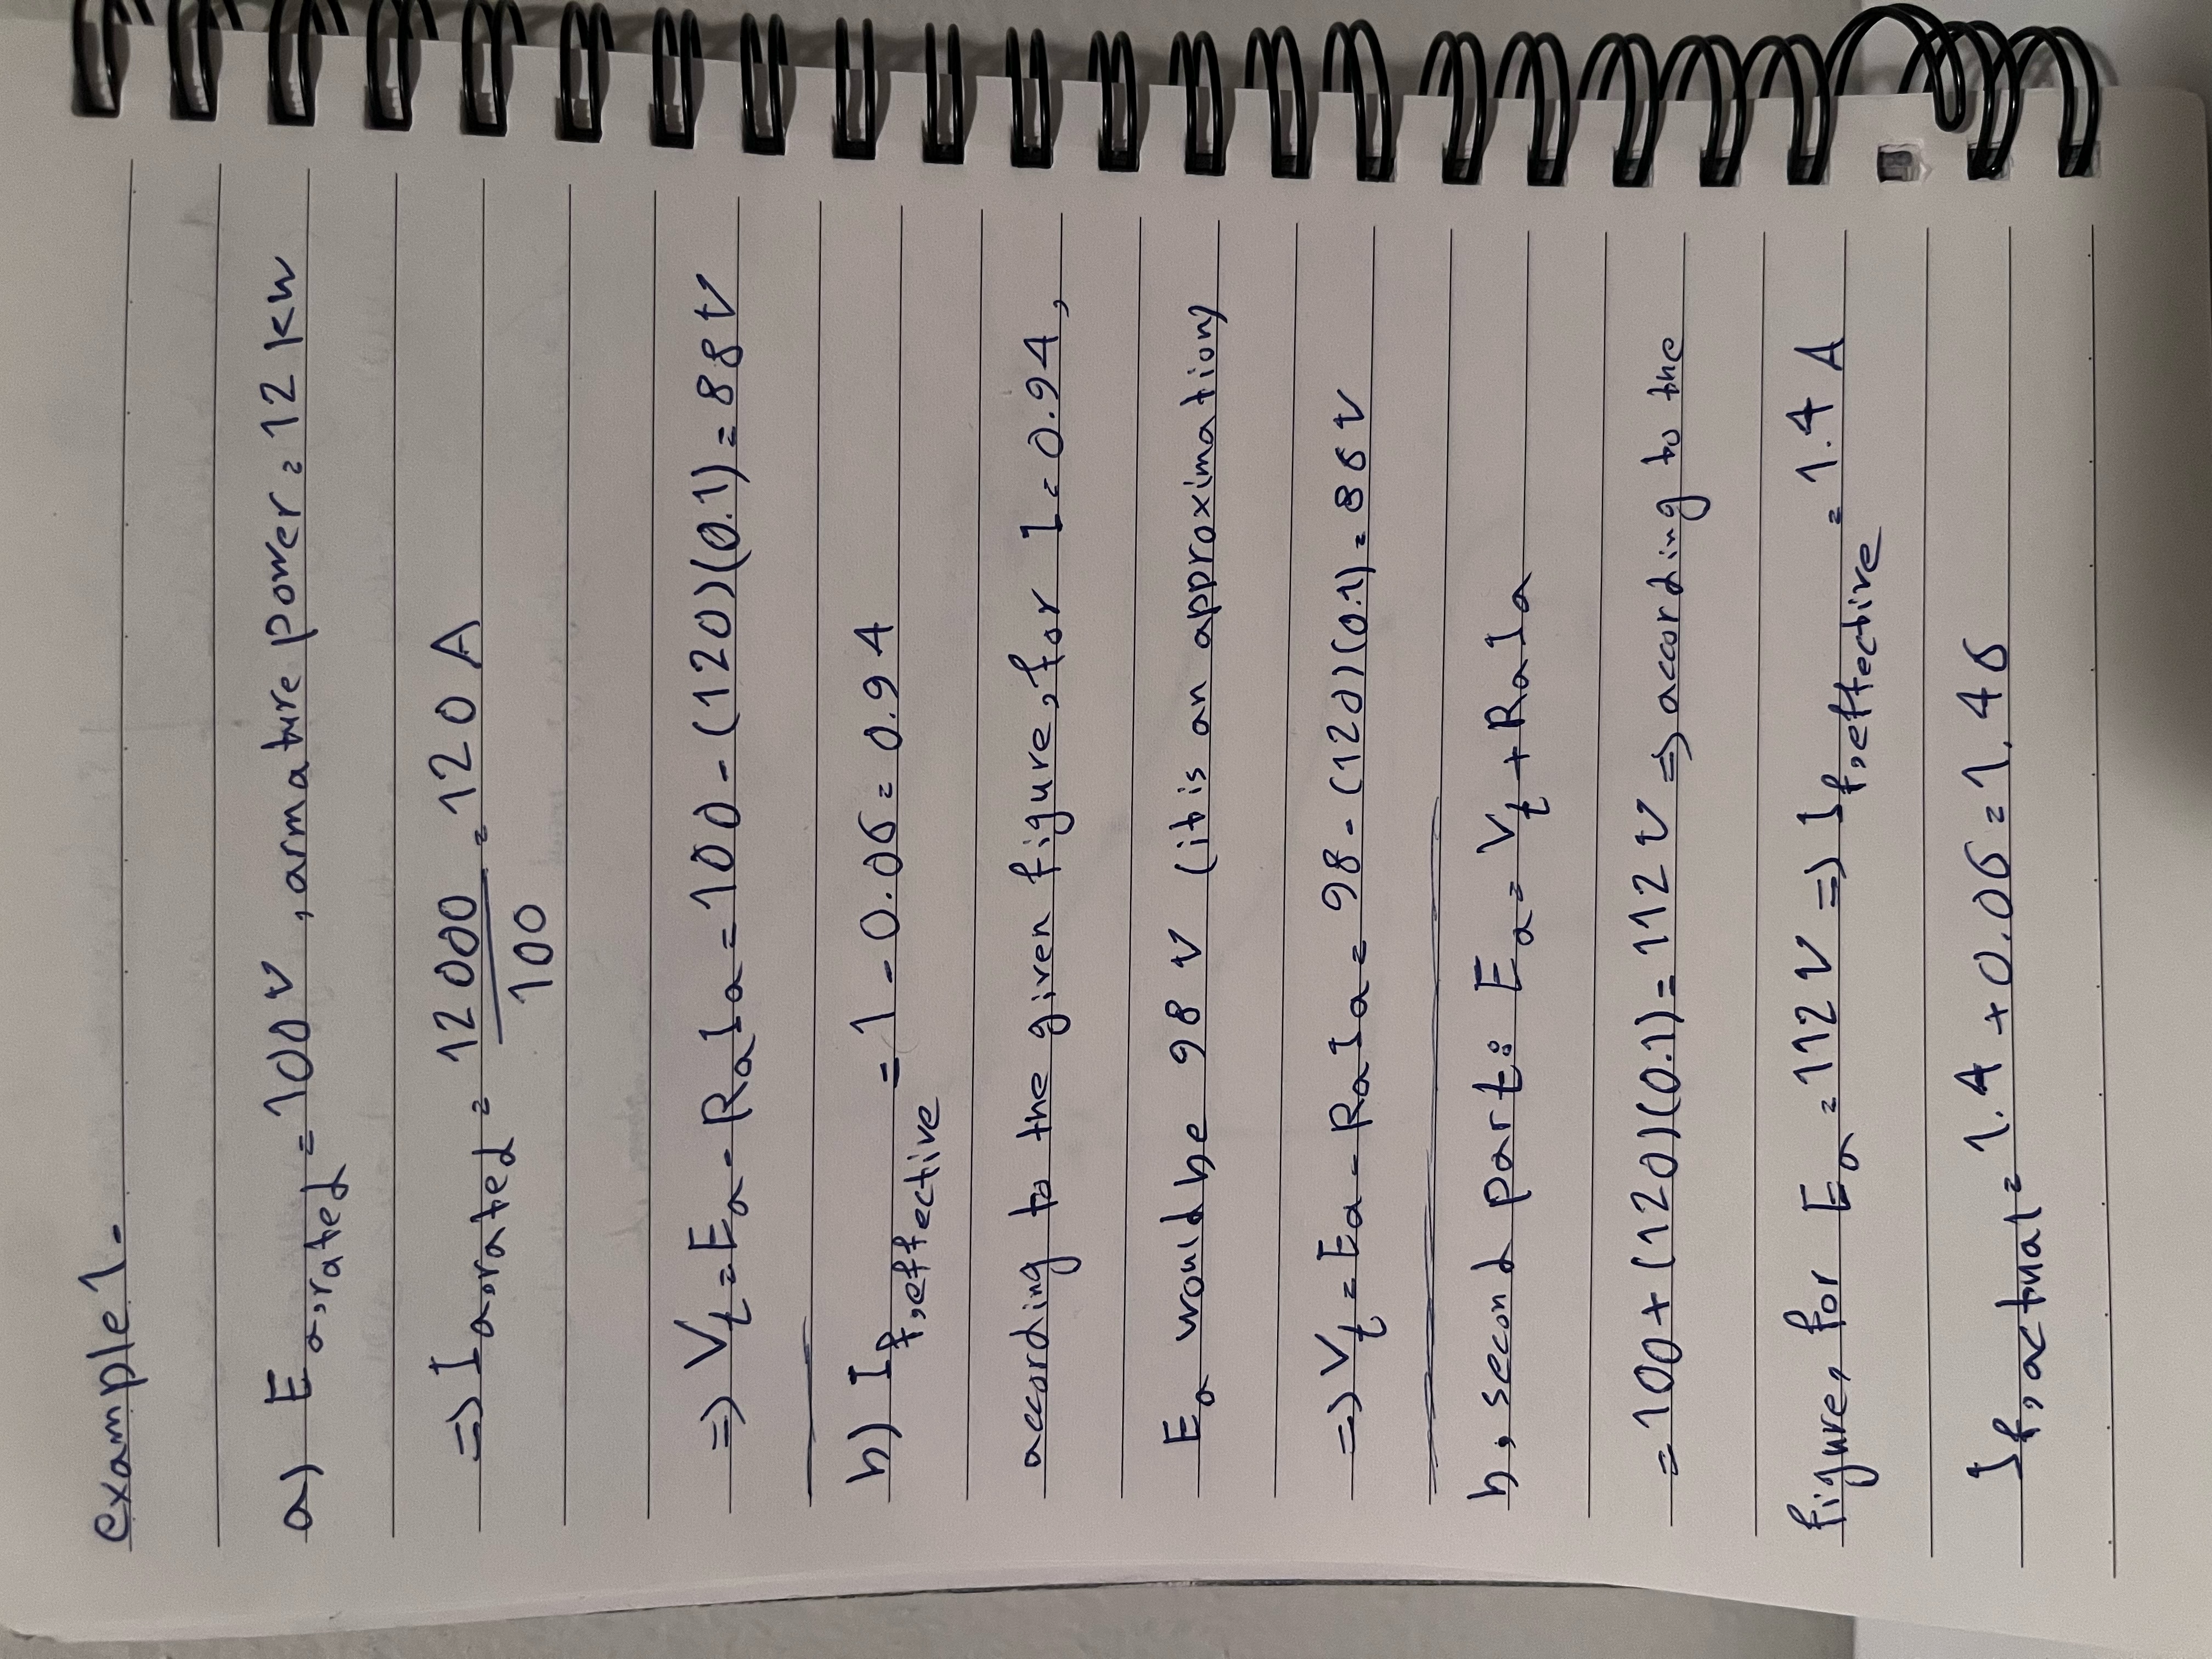 example 1-
a) Ea,rated = 100 V, armature power = 12 kW
=> Ia,rated = 12000/100 = 120 A
=> Vt = Ea - RaIa = 100 - (120)(0.1) = 88 V
b) If,effective = 1 - 0.06 = 0.94
according to the given figure, for I = 0.94,
Ea would be 98 V (it is an approximation)
=> Vt = Ea - RaIa = 98 - (120)(0.1) = 86 V
b, second part: Ea = Vt + RaIa
= 100 + (120)(0.1) = 112 V => according to the
figure, for Ea = 112 V => If,effective = 1.4 A
If,actual = 1.4 + 0.06 = 1.46